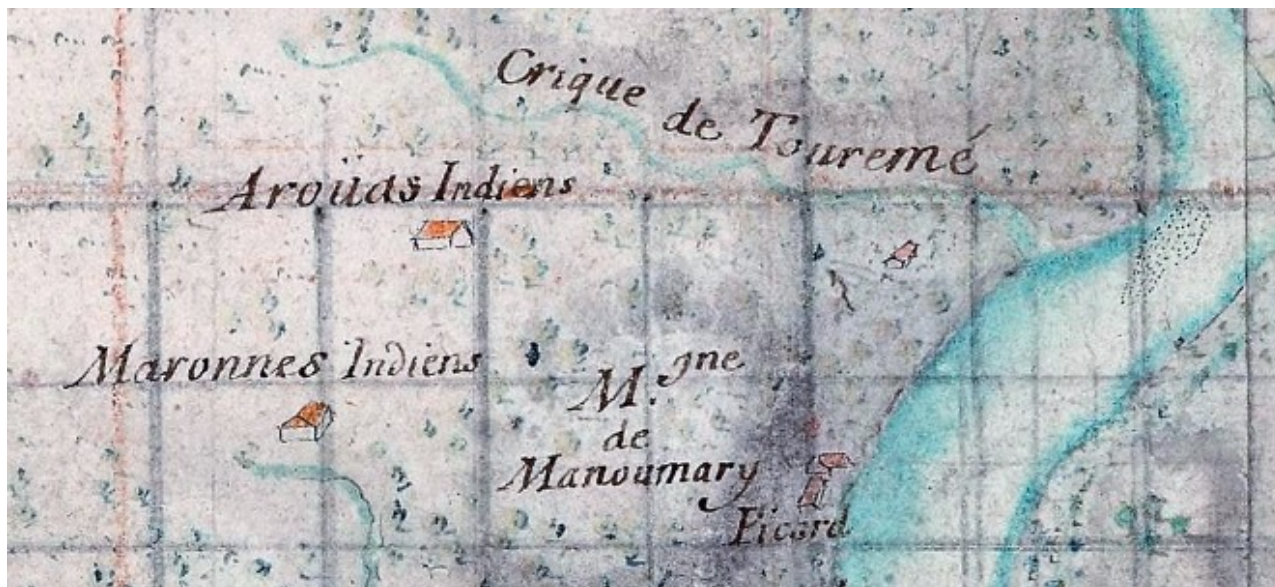 Crique de Touremé
Aroüas Indiens
Maronnes Indiens
M.gne
de
Manoumary
Picard